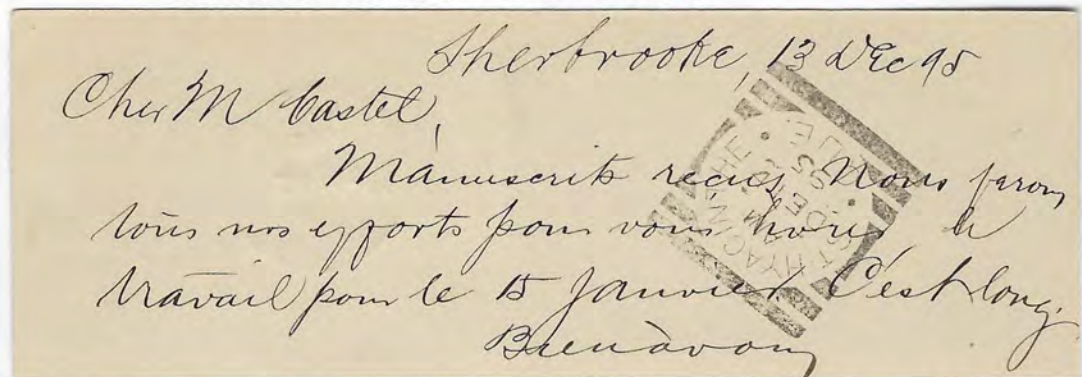 Sherbrooke, 13 Dec 95
Cher M Castel,
Manuscrits reçus. Nous ferons
tous nos efforts pour vous livrer le
travail pour le 15 Janvier. C'est long.
Bien à vous
ST HYACINTHE
QUE
AM
DE 13
95